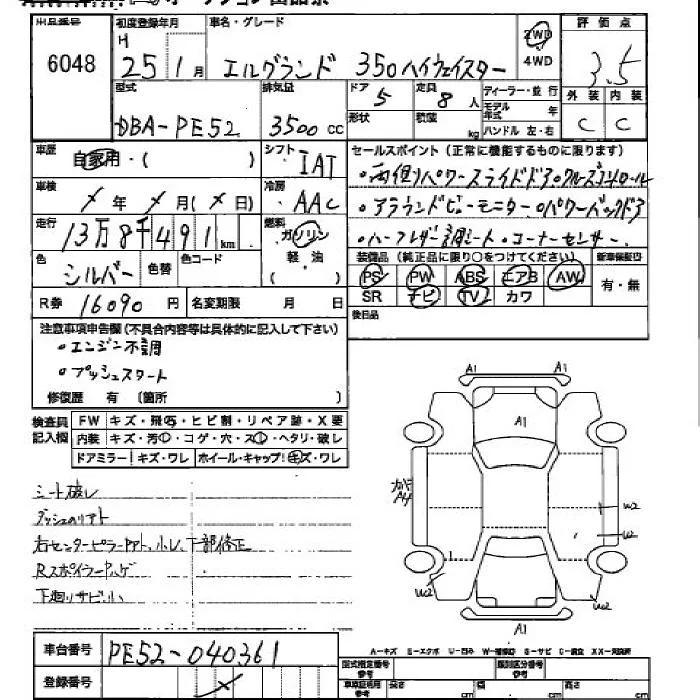 出品番号 初度登録年月 車名・グレード 評価点
6048 H 25 1月 エルグランド 350ハイウェイスター 2WD 4WD 3.5
型式 排気量 ドア 5 定員 8人 ディーラー・並行 外装 内装
DBA-PE52 3500cc 形状 積載 kg モデル年式 年 ハンドル 左・右 C C
車歴 自家用・( ) シフト IAT セールスポイント(正常に機能するものに限ります)
・両側パワースライドドア・クルーズコントロール
車検 ×年 ×月(×日) 冷房 AAC ・アラウンドビューモニター・パワーバックドア
走行 13万8千491km 燃料 ガソリン 軽・油 ( ) ・ハーフレザー調シート・コーナーセンサー
色 シルバー 色替 色コード 装備品(純正品に限り○をつけてください) 新車保証書
PS PW ABS エアB AW 有・無
R券 16090円 名変期限 月 日 SR ナビ TV カワ
注意車項申告欄(不具合内容等は具体的に記入して下さい) 後日品
・エンジン不調
・プッシュスタート
修復歴 有 (箇所 )
検査員記入欄 FW キズ・飛石・ヒビ割・リペア跡・X要
内装 キズ・汚・コゲ・穴・ス・ヘタリ・破レ
ドアミラー キズ・ワレ ホイール・キャップ キズ・ワレ
A1 A1
A1
シート破レ
ダッシュのリアト
右センターピラー 小レ、下部修正
Rスポイラー ハゲ
下廻りサビ小
A4
W2
W2
W2 W2
A1
A-キズ E-エクボ U-凹み W-補修跡 S-サビ C-腐食 XX-交換済
車台番号 PE52-040361
型式指定番号 参考 類別区分番号 参考
登録番号 ×
長さ cm 幅 cm 高さ cm